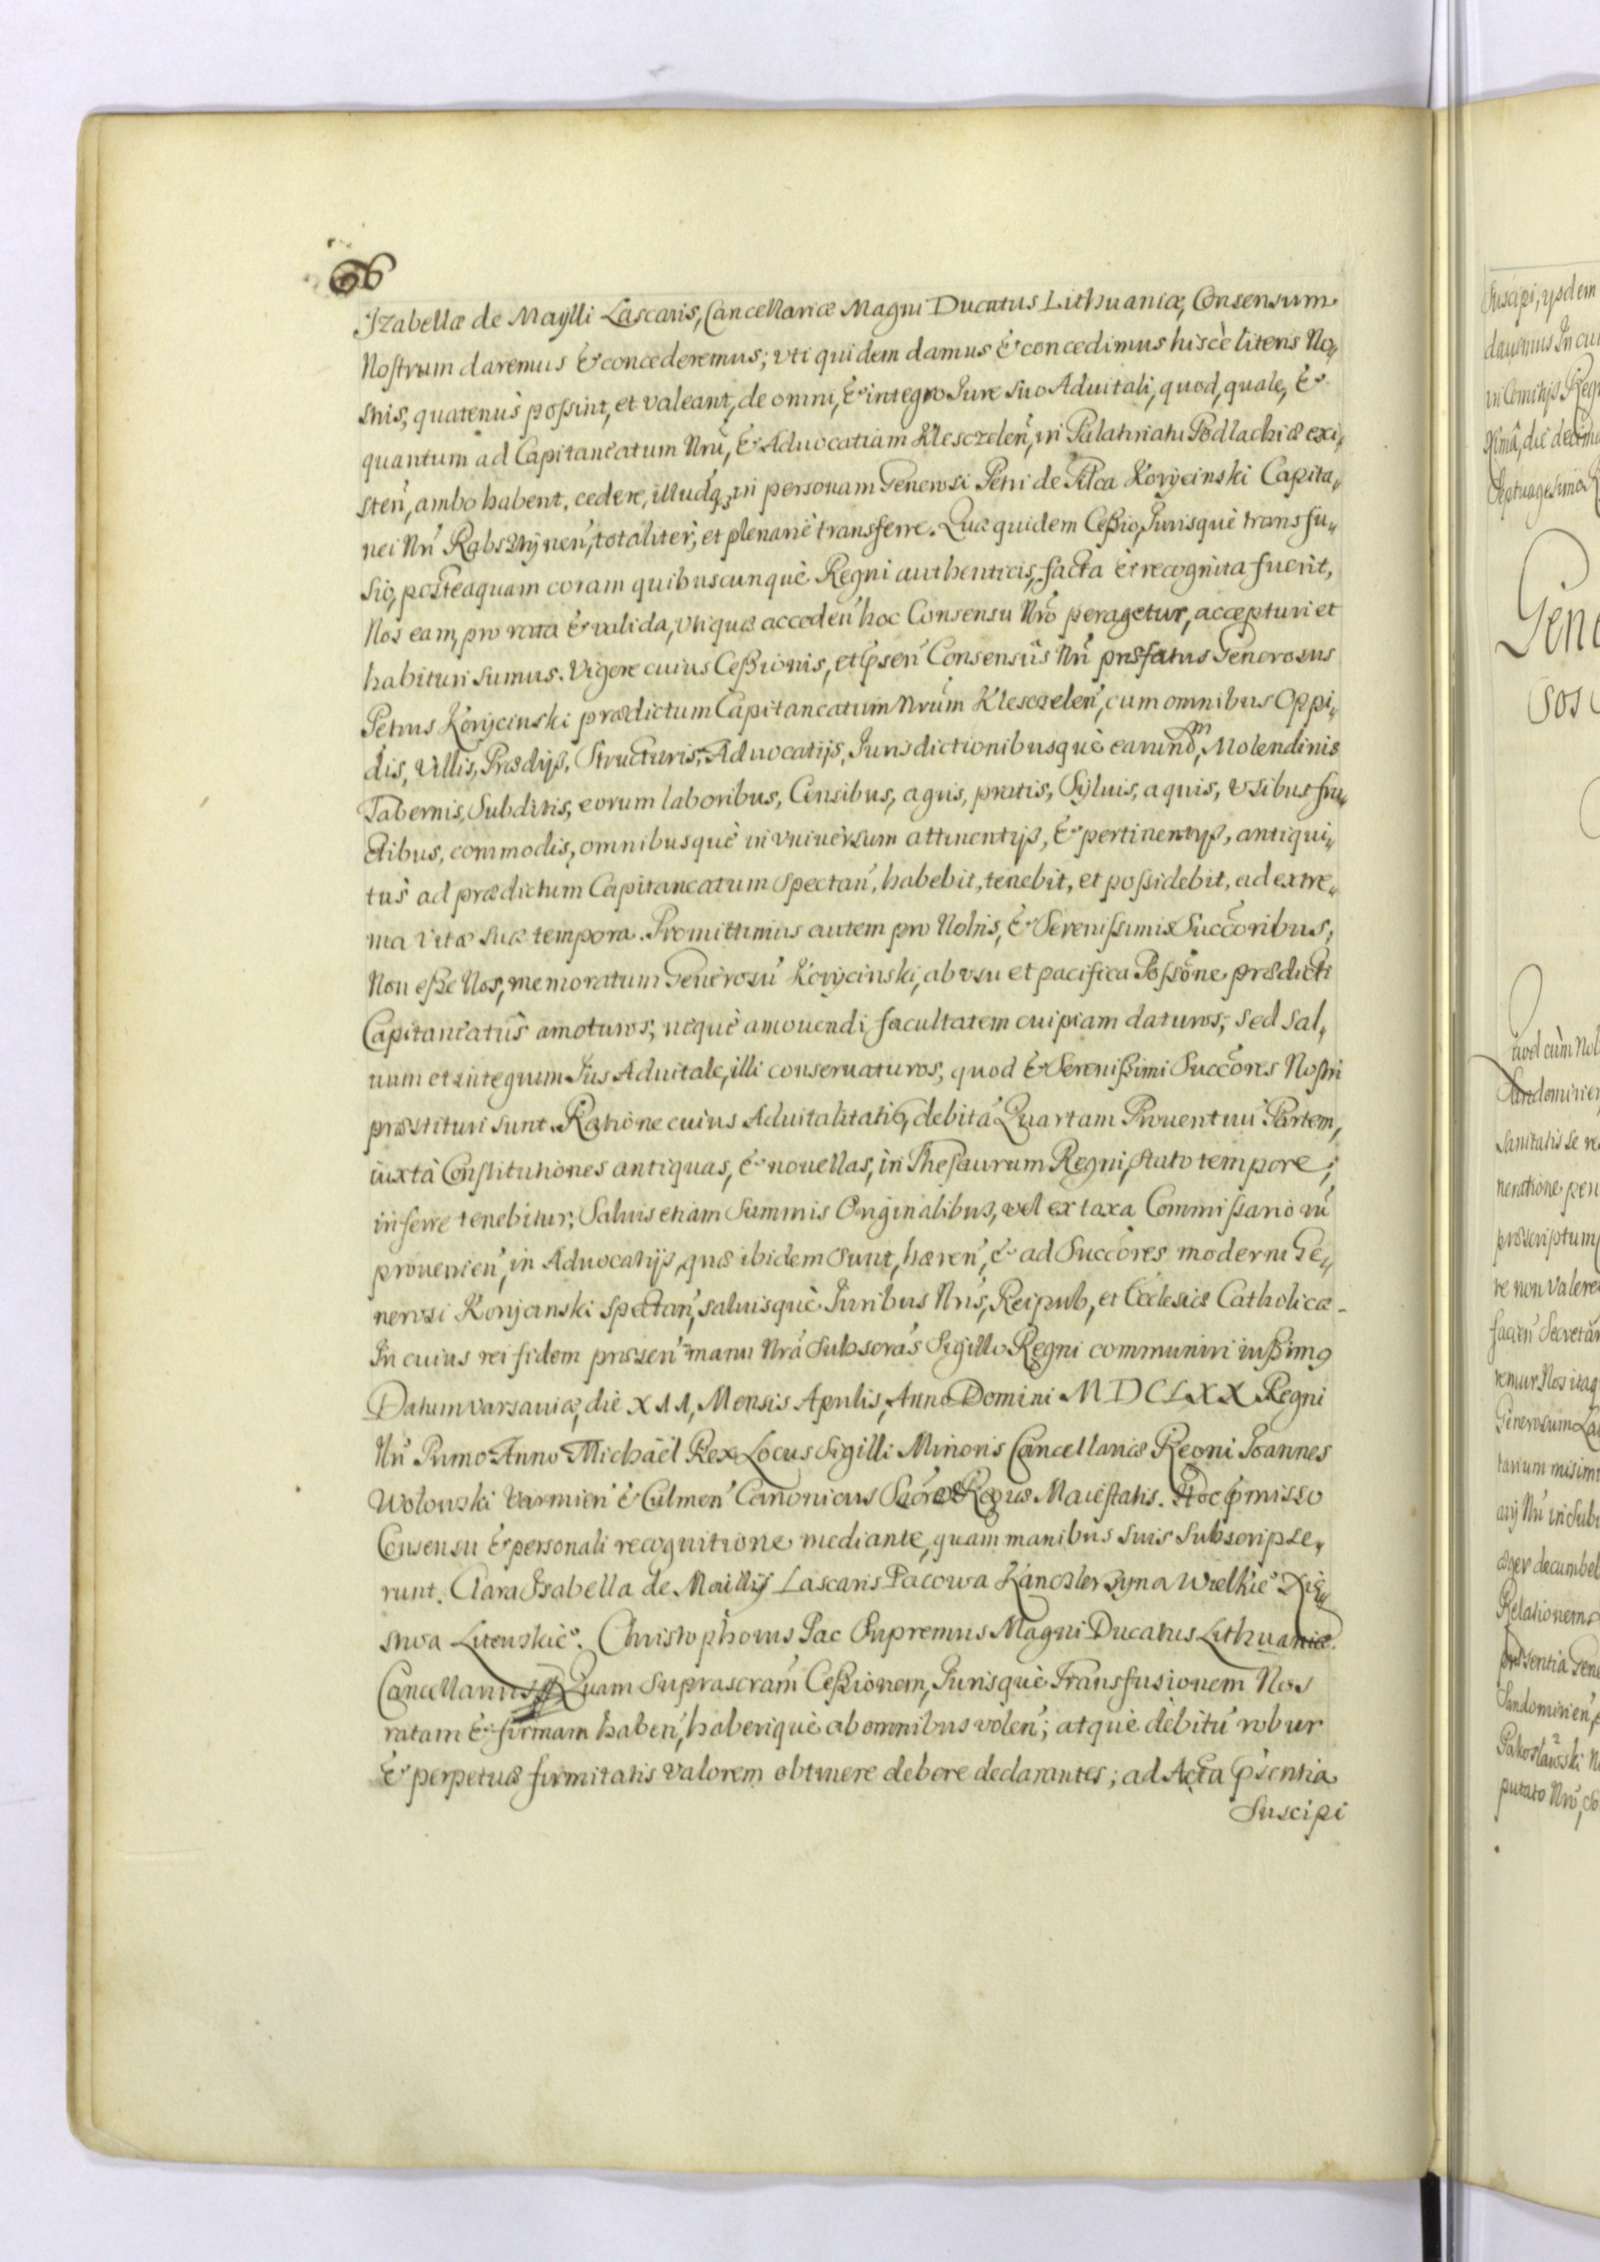 66
Izabellæ de Maylli Lascaris, Cancellariæ Magni Ducatus Lithuaniæ, Consensum
Nostrum daremus & concederemus; vti quidem damus & concedimus hiscè literis No„
stris, quatenùs possint, et valeant, de omni, & integro Iure suo Aduitali, quod, quale, &
quantum ad Capitaneatum Nrũ, & Aduocatiam Klesczelen̄, in Palatinatu Podlachiæ exi„
sten̄, ambo habent, cedere, illudq₃, in personam Generosi Petri de Pilca Koryciński Capita„
nei Nrĩ Rabsztynen̄, totalitèr, et plenariè transferre. Quæ quidem Cessio, Iurisquè transfu„
sio, posteaquam coram quibuscunquè Regni authenticis, facta et recognita fuerit,
Nos eam, pro rata & valida, vtiquæ acceden̄ hoc Consensu Nrõ peragetur, accepturi et
habituri sumus. Vigore cuius Cessionis, et p̄sen̄ Consensûs Nrĩ præfatus Generosus
Petrus Koryciński prædictum Capitaneatum Nrũm Klesczelen̄, cum omnibus Oppi„
dis, Villis, Prædijs, Structuris, Aduocatijs, Iurisdictionibusquè earundm, Molendinis
Tabernis, Subditis, eorum laboribus, Censibus, agris, pratis, Syluis, aquis, vsibus fru„
ctibus, commodis, omnibusquè in vniuersum attinentijs, & pertinentijs, antiqui„
tùs ad prædictum Capitaneatum spectan̄, habebit, tenebit, et possidebit, ad extre„
ma vitæ suæ tempora. Promittimus autem pro Nobis, & Serenissimis Succõribus,
Non esse Nos, memoratum Generosũ Koryciński, ab vsu et pacifica Possõne prædicti
Capitaneatûs amoturos, nequè amouendi facultatem cuipiam daturos; sed sal„
uum et integrum Ius Aduitale, illi conseruaturos, quod & Serenissimi Succõres Nostri
præstituri sunt. Ratione cuius Aduitalitatis, debitã Quartam Prouentuũ Partem,
iuxtà Constitutiones antiquas, & nouellas, in Thesaurum Regni, stato tempore,
inferre tenebitur; Saluis etiam Summis Originalibus, vel ex taxa Commissario rũ
prouenien̄, in Aduocatijs, quæ ibidem sunt, hæren̄, & ad Succõres moderni Ge„
nerosi Koryciński spectan̄, saluisquè Iuribus Nrĩs, Reipub, et Ecclesiæ Catholicæ.
In cuius rei fidem præsen̄ manu Nrã Subscrãs Sigillo Regni communiri iussimꝰ
Datum Varsauiæ, die XII, Mensis Aprilis, Anno Domini MDCLXX Regni
Nrĩ Primo Anno Michäel Rex Locus Sigilli Minoris Cancellariæ Regni Ioannes
Wołowski Varmien̄ & Culmen̄ Canonicus Sacræ Regiæ Maiestatis. Hoc p̄misso
Consensu & personali recognitione mediante, quam manibus suis subscripse„
runt. Clara Isabella de Maillij Lascaris Pacowa Kanclerzyna Wielkie° Xię„
stwa Litewskie°. Christophorus Pac Supremus Magni Ducatus Lithuaniæ
Cancellarius Quam suprascrãm Cessionem, Iurisquè Transfusionem Nos
ratam & firmam haben̄, haberiquè ab omnibus volen̄; atquè debitũ robur
& perpetuæ firmitatis valorem obtinere debere declarantes; ad Acta p̄sentia
Suscipi